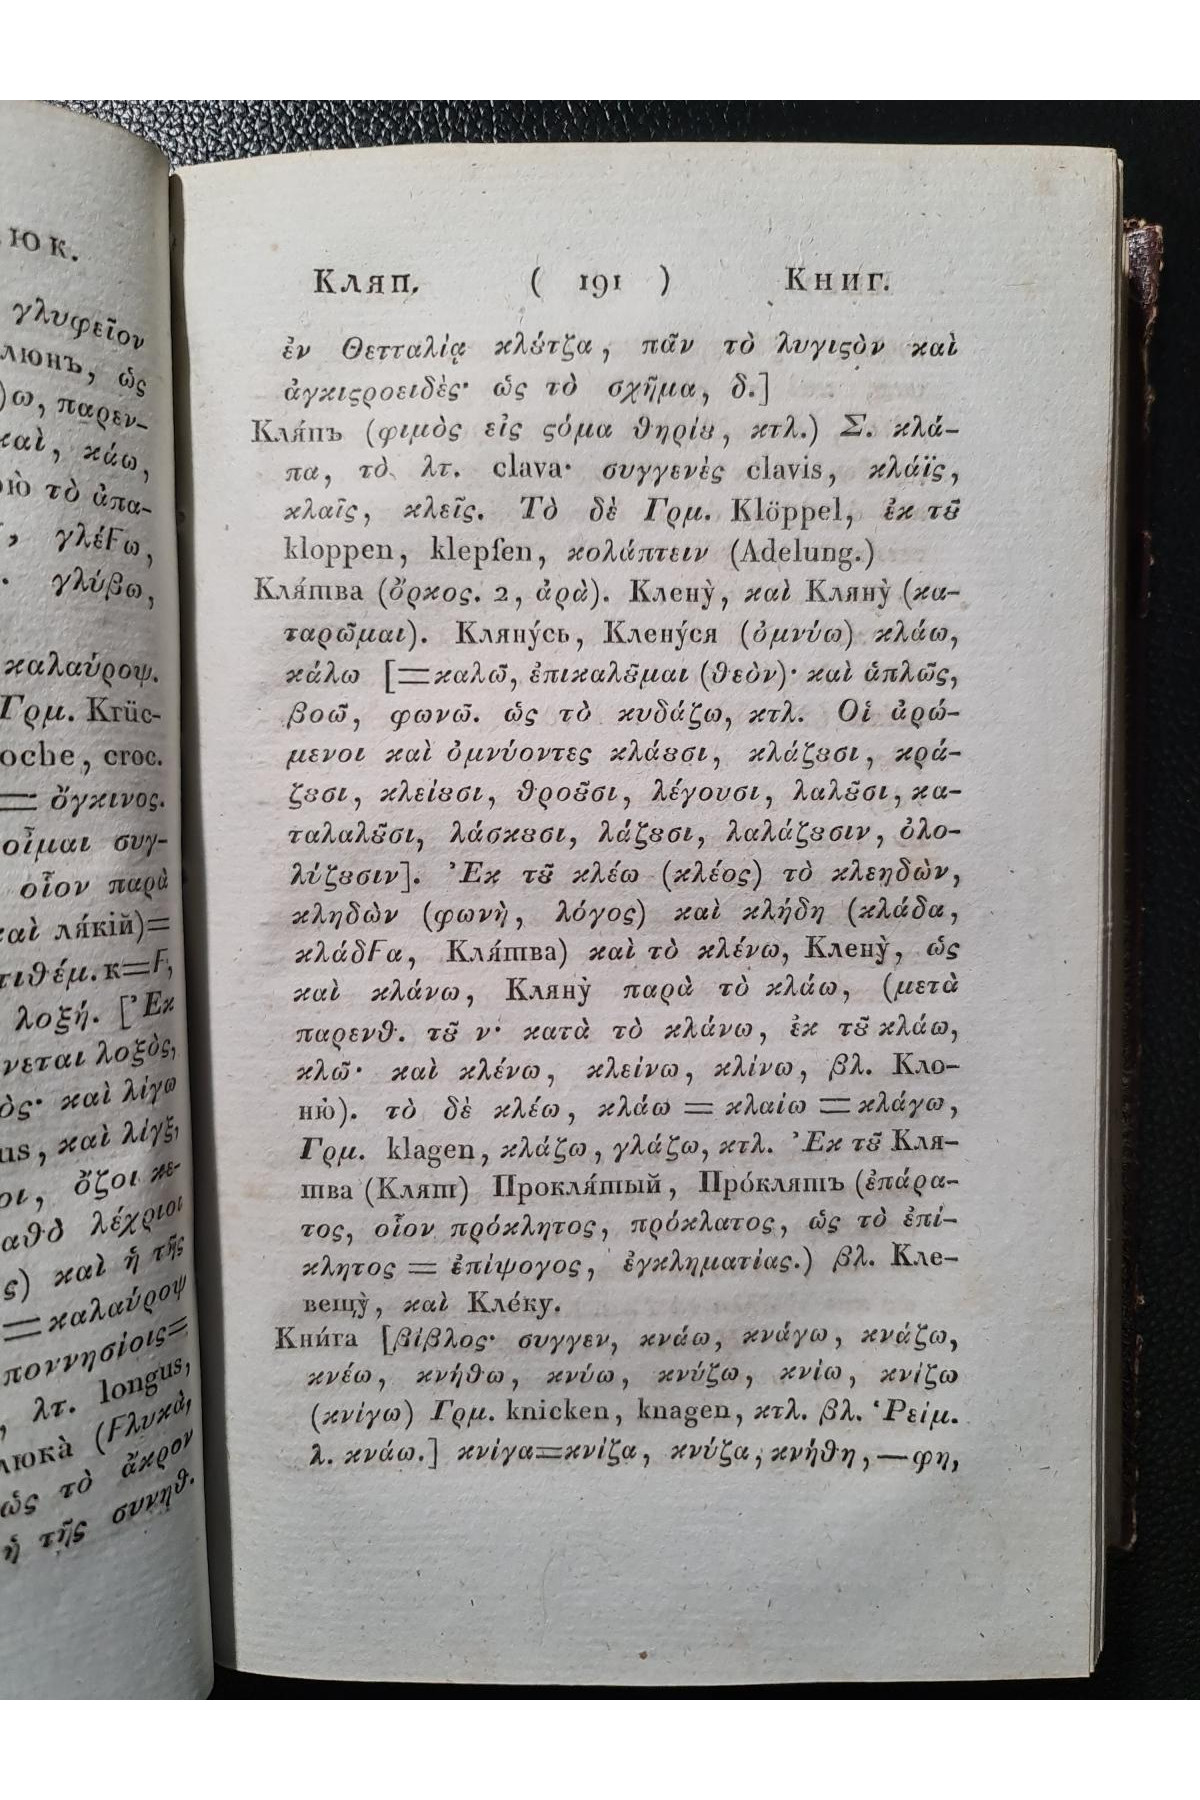 ЮК.
γλυφεῖον
люнъ, ὡς
)ω, παρεν-
καὶ, κάω,
τὸ ἀπα-
, γλέFω,
γλύβω,
καλαύροψ.
Γρμ. Krüc-
oche, croc.
= ὄγκινος.
οἶμαι συγ-
οἷον παρὰ
καὶ ля́кій)=
τιθέμ. κ=F,
λοξή. [Ἐκ
νεται λοξὸς,
ὸς· καὶ λίγω
us, καὶ λίγξ,
οι, ὄζοι κε-
αθὸ λέχριοι
ς) καὶ ἡ τῆς
=καλαύροψ
ποννησίοις=
, λτ. longus,
люкà (Fλυκὰ,
ὡς τὸ ἄκρον
ἡ τῆς συνηθ.
Кляп. ( 191 ) Книг.
ἐν Θετταλίᾳ κλȣ́τζα, πᾶν τὸ λυγιϛὸν καὶ
ἀγκιϛροειδὲς· ὡς τὸ σχῆμα, δ.]
Кля́пъ (φιμὸς εἰς ϛόμα θηρίȣ, κτλ.) Σ. κλά-
πα, τὸ λτ. clava· συγγενὲς clavis, κλάϊς,
κλαῖς, κλεῖς. Τὸ δὲ Γρμ. Klöppel, ἐκ τȣ͂
kloppen, klepfen, κολάπτειν (Adelung.)
Кля́тва (ὅρκος. 2, ἀρὰ). Клену̀, καὶ Кляну̀ (κα-
ταρῶμαι). Кляну́сь, Клену́ся (ὀμνύω) κλάω,
κάλω [=καλῶ, ἐπικαλȣ͂μαι (θεὸν)· καὶ ἁπλῶς,
βοῶ, φωνῶ. ὡς τὸ κυδάζω, κτλ. Οἱ ἀρώ-
μενοι καὶ ὀμνύοντες κλάȣσι, κλάζȣσι, κρά-
ζȣσι, κλείȣσι, θροȣ͂σι, λέγουσι, λαλȣ͂σι, κα-
ταλαλȣ͂σι, λάσκȣσι, λάζȣσι, λαλάζȣσιν, ὀλο-
λύζȣσιν]. Ἐκ τȣ͂ κλέω (κλέος) τὸ κλεηδὼν,
κληδὼν (φωνὴ, λόγος) καὶ κλήδη (κλάδα,
κλάδFα, Кля́тва) καὶ τὸ κλένω, Клену̀, ὡς
καὶ κλάνω, Кляну̀ παρὰ τὸ κλάω, (μετὰ
παρενθ. τȣ͂ ν· κατὰ τὸ κλάνω, ἐκ τȣ͂ κλάω,
κλῶ· καὶ κλένω, κλείνω, κλίνω, βλ. Кло-
ню̀). τὸ δὲ κλέω, κλάω = κλαίω = κλάγω,
Γρμ. klagen, κλάζω, γλάζω, κτλ. Ἐκ τȣ͂ Кля-
тва (Клят) Прокля́тый, Про́клятъ (ἐπάρα-
τος, οἷον πρόκλητος, πρόκλατος, ὡς τὸ ἐπί-
κλητος = ἐπίψογος, ἐγκληματίας.) βλ. Кле-
вещу̀, καὶ Кле́ку.
Кни́га [βίβλος· συγγεν, κνάω, κνάγω, κνάζω,
κνέω, κνήθω, κνύω, κνύζω, κνίω, κνίζω
(κνίγω) Γρμ. knicken, knagen, κτλ. βλ. Ῥείμ.
λ. κνάω.] κνίγα=κνίζα, κνύζα, κνήθη, —φη,